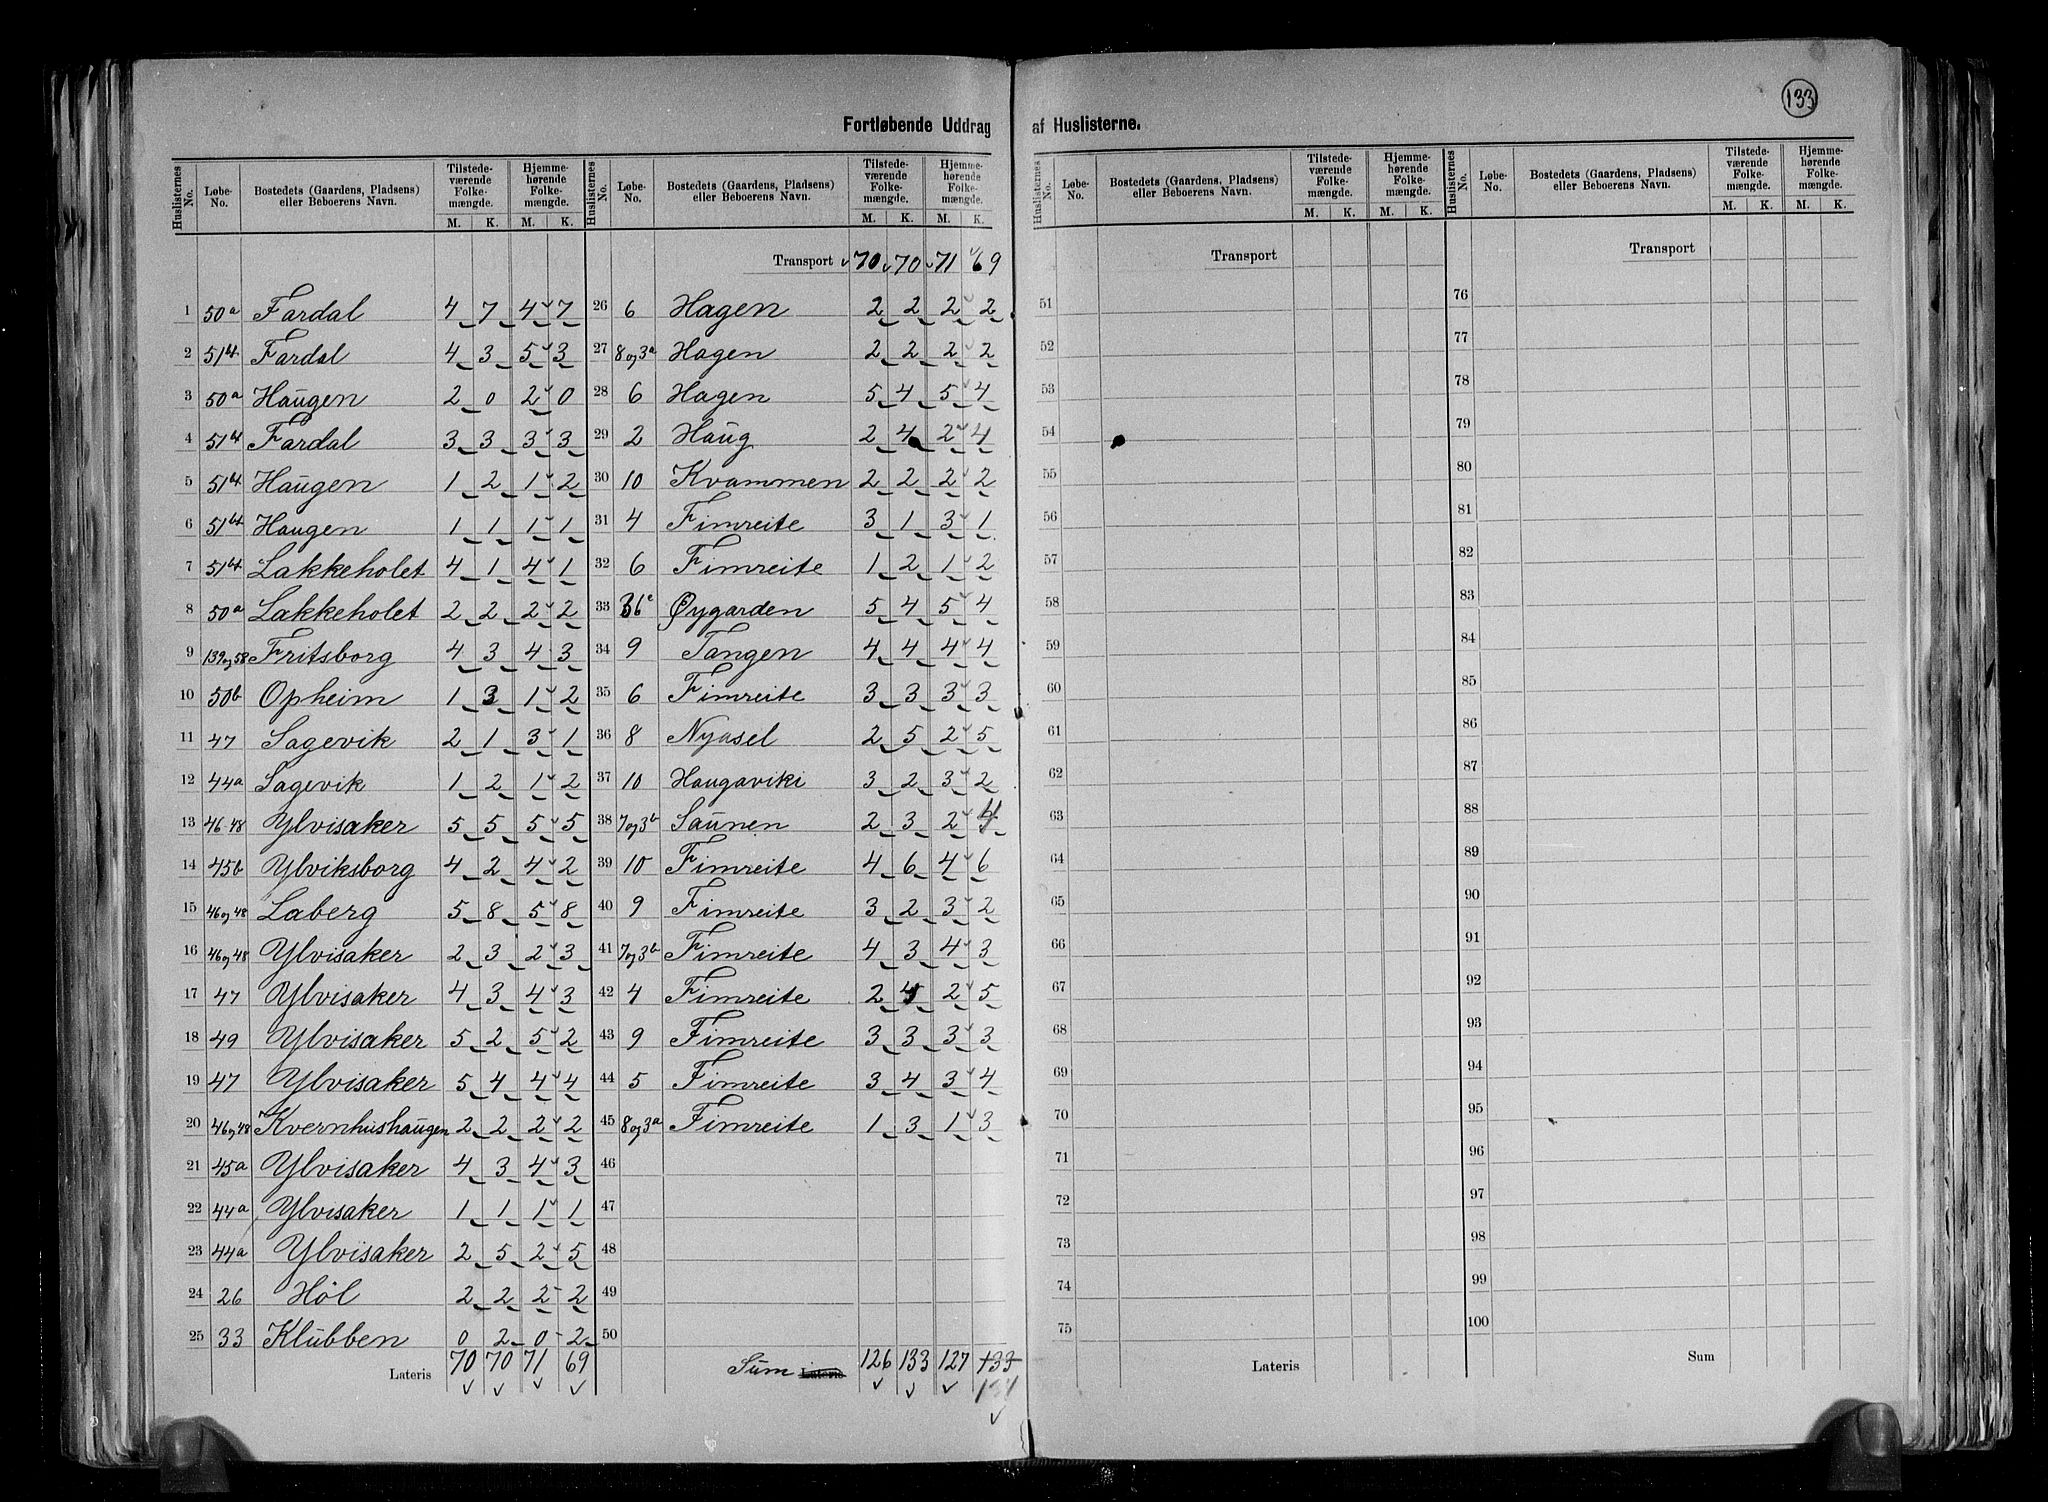 133
Fortløbende Uddrag af Huslisterne.
Huslisternes No. Løbe-No. Bostedets (Gaardens, Pladsens) eller Beboerens Navn. Tilstedeværende Folkemængde. M. K. Hjemmehørende Folkemængde. M. K.
1 50a Fardal 4 7 4 7
2 51 Fardal 4 3 5 3
3 50a Haugen 2 0 2 0
4 51 Fardal 3 3 3 3
5 51 Haugen 1 2 1 2
6 51 Haugen 1 1 1 1
7 51 Lakkeholet 4 1 4 1
8 50a Lakkeholet 2 2 2 2
9 139og58 Fritsborg 4 3 4 3
10 50b Opheim 1 3 1 2
11 47 Sagevik 2 1 3 1
12 44a Sagevik 1 2 1 2
13 46-48 Ylvisaker 5 5 5 5
14 45b Ylviksborg 4 2 4 2
15 46og48 Laberg 5 8 5 8
16 46og48 Ylvisaker 2 3 2 3
17 47 Ylvisaker 4 3 4 3
18 49 Ylvisaker 5 2 5 2
19 47 Ylvisaker 5 4 4 4
20 46og48 Kvernhushaugen 2 2 2 2
21 45a Ylvisaker 4 3 4 3
22 44a Ylvisaker 1 1 1 1
23 44a Ylvisaker 2 5 2 5
24 26 Høl 2 2 2 2
25 33 Klubben 0 2 0 2
Lateris 70 70 71 69
Huslisternes No. Løbe-No. Bostedets (Gaardens, Pladsens) eller Beboerens Navn. Tilstedeværende Folkemængde. M. K. Hjemmehørende Folkemængde. M. K.
Transport 70 70 71 69
26 6 Hagen 2 2 2 2
27 8og3a Hagen 2 2 2 2
28 6 Hagen 5 4 5 4
29 2 Haug 2 4 2 4
30 10 Kvammen 2 2 2 2
31 4 Fimreite 3 1 3 1
32 6 Fimreite 1 2 1 2
33 36c Øygarden 5 4 5 4
34 9 Tangen 4 4 4 4
35 6 Fimreite 3 3 3 3
36 8 Nyasel 2 5 2 5
37 10 Haugaviki 3 2 3 2
38 7og3b Saunen 2 3 2 4
39 10 Fimreite 4 6 4 6
40 9 Fimreite 3 2 3 2
41 7og3b Fimreite 4 3 4 3
42 4 Fimreite 2 2 5
43 9 Fimreite 3 3 3 3
44 5 Fimreite 3 4 3 4
45 8og3a Fimreite 1 3 1 3
46
47
48
49
50
Sum Lateris 126 133 127 133
134
Huslisternes No. Løbe-No. Bostedets (Gaardens, Pladsens) eller Beboerens Navn. Tilstedeværende Folkemængde. M. K. Hjemmehørende Folkemængde. M. K.
Transport
51
52
53
54
55
56
57
58
59
60
61
62
63
64
65
66
67
68
69
70
71
72
73
74
75
Lateris
Huslisternes No. Løbe-No. Bostedets (Gaardens, Pladsens) eller Beboerens Navn. Tilstedeværende Folkemængde. M. K. Hjemmehørende Folkemængde. M. K.
Transport
76
77
78
79
80
81
82
83
84
85
86
87
88
89
90
91
92
93
94
95
96
97
98
99
100
Sum